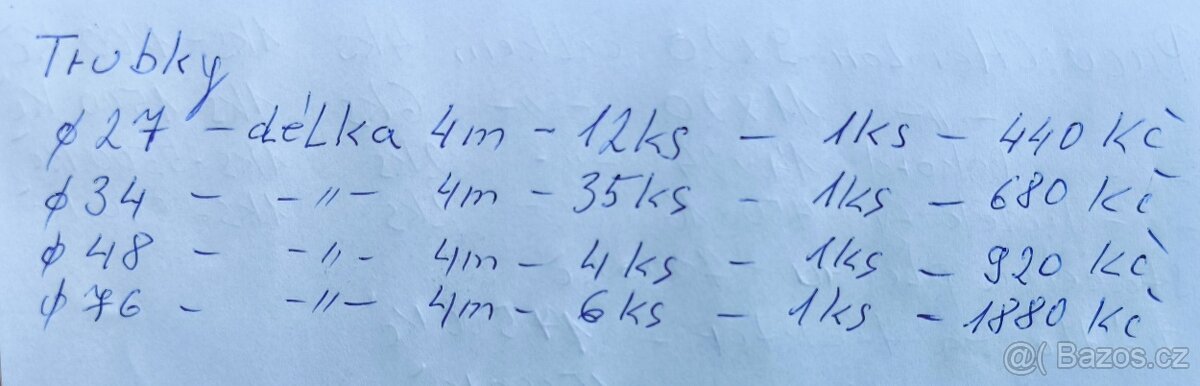 Trubky
ø 27 - délka 4m - 12ks - 1ks - 440 Kč
ø 34 - -〃- 4m - 35ks - 1ks - 680 Kč
ø 48 - -〃- 4m - 4ks - 1ks - 920 Kč
ø 76 - -〃- 4m - 6ks - 1ks - 1880 Kč
@( Bazos.cz